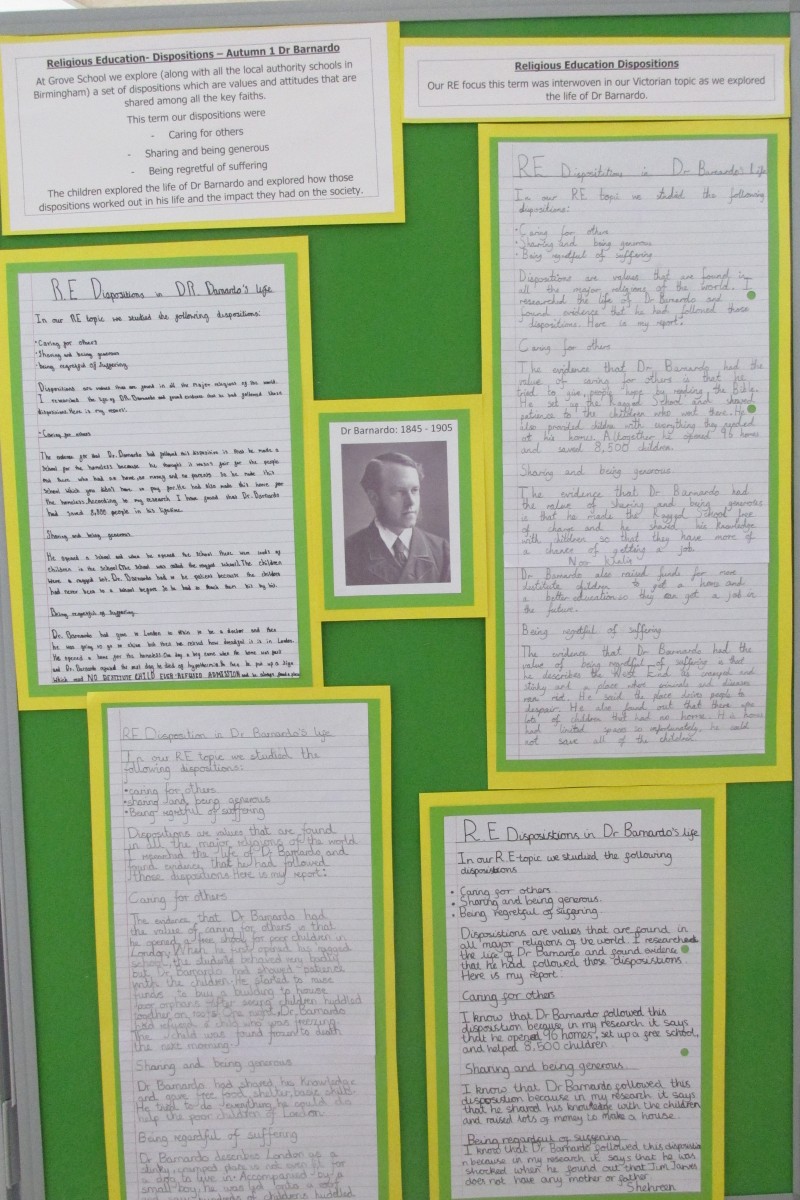 Religious Education- Dispositions – Autumn 1 Dr Barnardo
At Grove School we explore (along with all the local authority schools in
Birmingham) a set of dispositions which are values and attitudes that are
shared among all the key faiths.
This term our dispositions were
- Caring for others
- Sharing and being generous
- Being regretful of suffering
The children explored the life of Dr Barnardo and explored how those
dispositions worked out in his life and the impact they had on the society.
Religious Education Dispositions
Our RE focus this term was interwoven in our Victorian topic as we explored
the life of Dr Barnardo.
R.E Dispositions in DR. Barnardo's life
In our RE topic we studied the following dispositions:
•Caring for others
•Sharing and being generous
•being regretful of suffering
Dispositions are values that are found in all the major religions of the world.
I researched the life of DR. Barnardo and found evidence that he had followed these
dispositions. Here is my report:
•Caring for others
The evidence for that Dr. Barnardo had followed this disposition is that he made a
School for the homeless because he thought it wasn't fair for the people
out there who had no home, no money and no parents. So he made this
School which you didn't have to pay for. He had also made this home for
the homeless. According to my research I have found that Dr. Barnardo
had saved 8,500 people in his lifetime.
Sharing and being generous
He opened a School and when he opened the School there were loads of
children in the School. The School was called the ragged school. The children
were a ragged lot. Dr. Barnardo had to be patient because the children
had never been to a school before. So he had to teach them bit by bit.
Being regretful of suffering
Dr. Barnardo had gone to London to train to be a doctor and then
he was going to go to china but then he realised how dreadful it is in London.
He opened a home for the homeless. One day a boy came when the home was full
and Dr. Barnardo the next day he died of hypothermia. So then he put up a sign
which read NO DESTITUTE CHILD EVER REFUSED ADMISSION and he always
Dr Barnardo: 1845 - 1905
RE Dispositions in Dr Barnardo's Life
In our RE topic we studied the following
dispositions:
•Caring for others
•Sharing and being generous
•Being regretful of suffering
Dispositions are values that are found in
all the major religions of the world. I
researched the life of Dr Barnardo and
found evidence that he had followed those
dispositions. Here is my report:
Caring for others
The evidence that Dr Barnardo had the
value of caring for others is that he
tried to give people hope by reading the Bible.
He set up the Ragged School and showed
patience to the children who went there. He
also provided children with everything they needed
at his homes. Altogether he opened 96 homes
and saved 8,500 children.
Sharing and being generous
The evidence that Dr Barnardo had
the value of sharing and being generous
is that he made the Ragged School free
of charge and he shared his knowledge
with children so that they have more of
a chance of getting a job.
Noor Khalie
Dr Barnardo also raised funds for more
destitute children to get a home and
a better education so they can get a job in
the future.
Being regretful of suffering
The evidence that Dr Barnardo had the
value of being regretful of suffering is that
he describes the West End as cramped and
stinky and a place where animals and diseases
ran riot. He said the place drives people to
despair. He also found out that there are
lots of children that had no home. His homes
had limited spaces so unfortunately, he could
not save all of the children.
RE Disposition in Dr Barnardo's life
In our RE topic we studied the
following dispositions:
•caring for others
•sharing and being generous
•Being regretful of suffering
Dispositions are values that are found
in all the major religions of the world
I researched the life of Dr Barnardo and
found evidence that he had followed
those dispositions. Here is my report:
Caring for others
The evidence that Dr Barnardo had
the value of caring for others is that
he opened a free school for poor children in
London. When he first opened his ragged
school, the students behaved very badly
but Dr Barnardo had showed patience
with the children. He started to raise
funds to buy a building to house
poor orphans after seeing children huddled
together on roofs. One night, Dr. Barnardo
had refused a child who was freezing.
The child was found frozen to death
the next morning.
Sharing and being generous
Dr Barnardo had shared his knowledge
and gave free food, shelter, basic skills.
He tried to do everything he could do
help the poor children of London
Being regardful of suffering
Dr Barnardo describe London as a
stinky, cramped place is not even fit for
a dog to live in. Accompanied by a
small boy, he was led onto a roof
hundreds of childrens huddled
R.E Disposistions in Dr Barnardo's life
In our R.E topic we studied the following
disposistions
• Caring for others
• Sharing and being generous.
• Being regretful of suffering.
Disposistions are values that are found in
all major religions of the world. I researched
the life of Dr Barnardo and found evidence
that he had followed those disposistions.
Here is my report.
Caring for others
I know that Dr Barnardo followed this
disposistion because in my research it says
that he opened 96 homes, set up a free school,
and helped 8,500 children.
Sharing and being generous.
I know that Dr Barnardo followed this
disposistion because in my research it says
that he shared his knowledge with the children
and raised lots of money to make a house.
Being regardful of suffering
I know that Dr Barnardo followed this disposistio
n because in my research it says that he was
shocked when he found out that Jim Jarvis
does not have any mother or father.
Shehreen